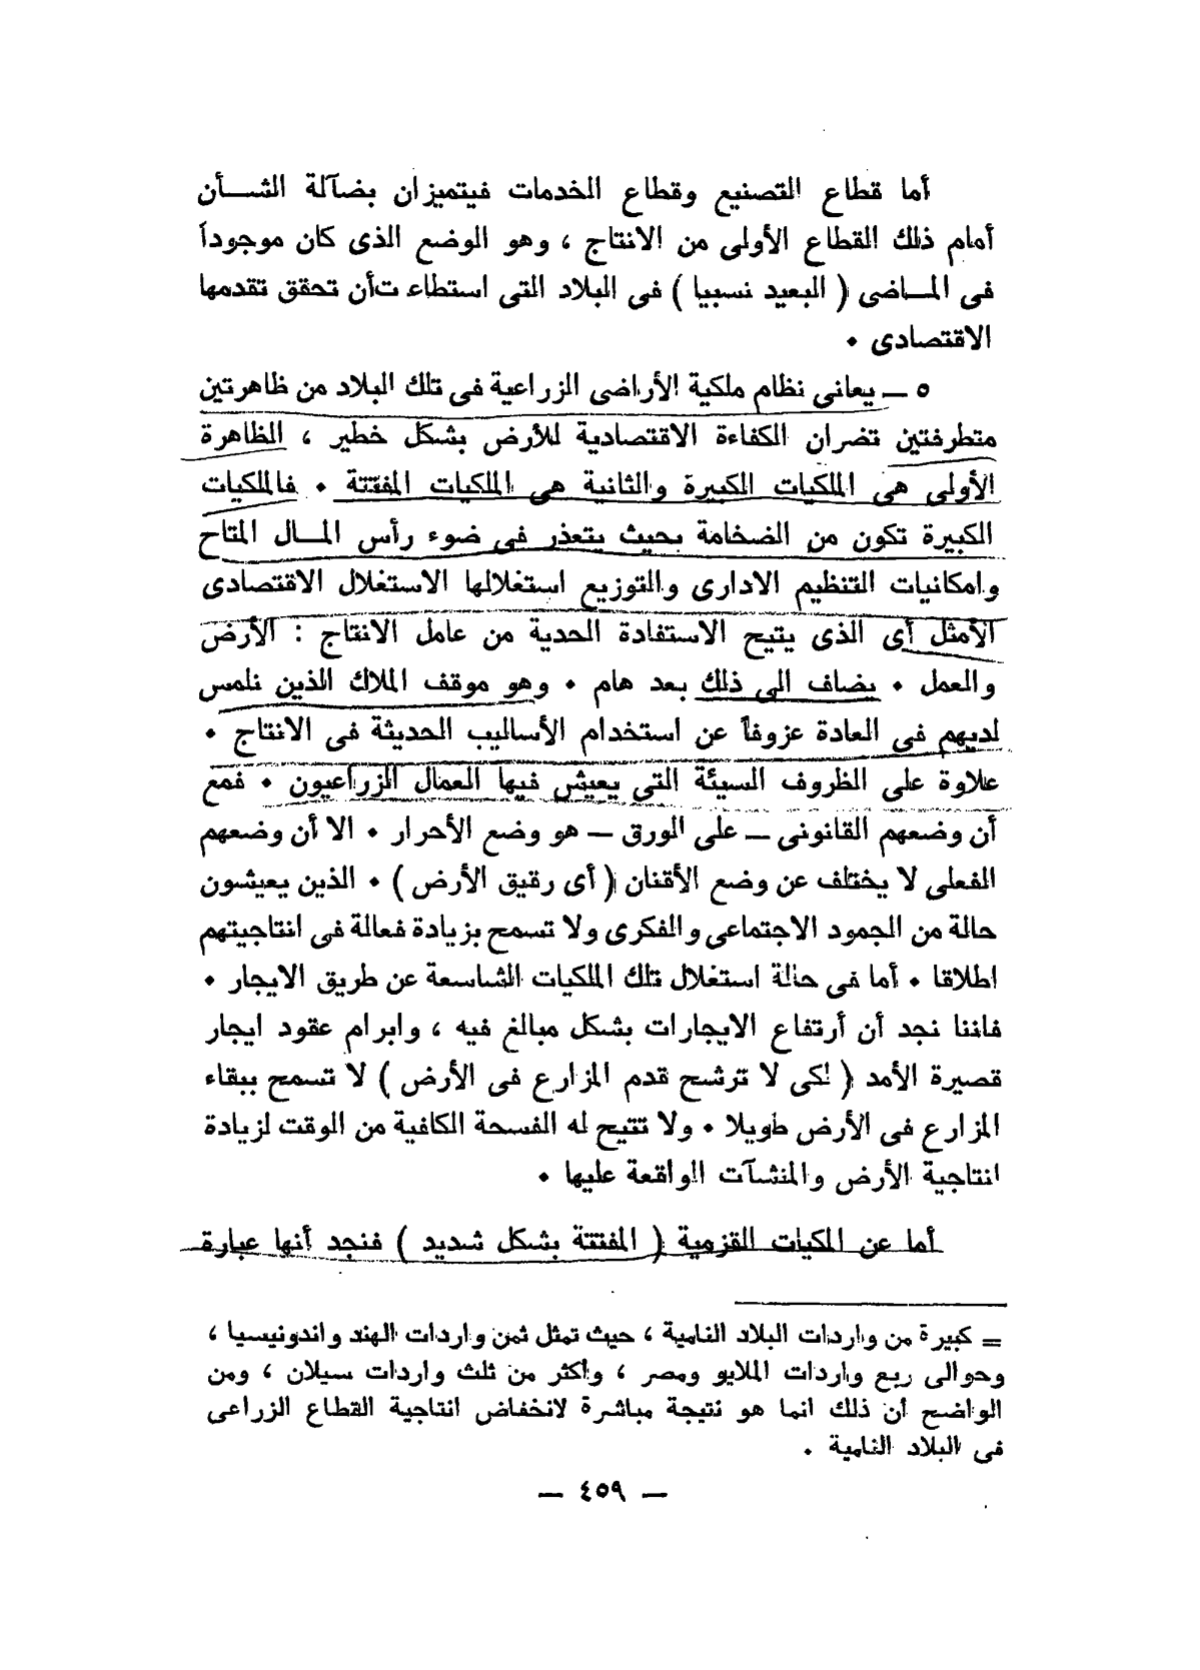 أما قطاع التصنيع وقطاع الخدمات فيتميزان بضآلة الشـــأن
أمام ذلك القطاع الأولى من الانتاج ، وهو الوضع الذى كان موجوداً
فى المـــاضى ( البعيد نسبيا ) فى البلاد التى استطاء تأن تحقق تقدمها
الاقتصادى ٠
٥ ــ يعانى نظام ملكية الأراضى الزراعية فى تلك البلاد من ظاهرتين
متطرفتين تضران الكفاءة الاقتصادية للأرض بشكل خطير ، الظاهرة
الأولى هى الملكيات الكبيرة والثانية هى الملكيات المفتتة ٠ فالملكيات
الكبيرة تكون من الضخامة بحيث يتعذر فى ضوء رأس المـــال المتاح
وامكانيات التنظيم الادارى والتوزيع استغلالها الاستغلال الاقتصادى
الأمثل أى الذى يتيح الاستفادة الحدية من عامل الانتاج : الأرض
والعمل ٠ يضاف الى ذلك بعد هام ٠ وهو موقف الملاك الذين نلمس
لديهم فى العادة عزوفاً عن استخدام الأساليب الحديثة فى الانتاج ٠
علاوة على الظروف السيئة التى يعيش فيها العمال الزراعيون ٠ فمع
أن وضعهم القانونى ــ على الورق ــ هو وضع الأحرار ٠ الا أن وضعهم
الفعلى لا يختلف عن وضع الأقنان ( أى رقيق الأرض ) ٠ الذين يعيشون
حالة من الجمود الاجتماعى والفكرى ولا تسمح بزيادة فعالة فى انتاجيتهم
اطلاقا ٠ أما فى حالة استغلال تلك الملكيات الشاسعة عن طريق الايجار ٠
فاننا نجد أن أرتفاع الايجارات بشكل مبالغ فيه ، وابرام عقود ايجار
قصيرة الأمد ( لكى لا ترشح قدم المزارع فى الأرض ) لا تسمح ببقاء
المزارع فى الأرض طويلا ٠ ولا تتيح له الفسحة الكافية من الوقت لزيادة
انتاجية الأرض والمنشآت الواقعة عليها ٠
أما عن المكيات القزمية ( المفتتة بشكل شديد ) فنجد أنها عبارة
= كبيرة من واردات البلاد النامية ، حيث تمثل ثمن واردات الهند واندونيسيا ،
وحوالى ربع واردات الملايو ومصر ، وأكثر من ثلث واردات سيلان ، ومن
الواضح أن ذلك انما هو نتيجة مباشرة لانخفاض انتاجية القطاع الزراعى
فى البلاد النامية .
ــ ٤٥٩ ــ